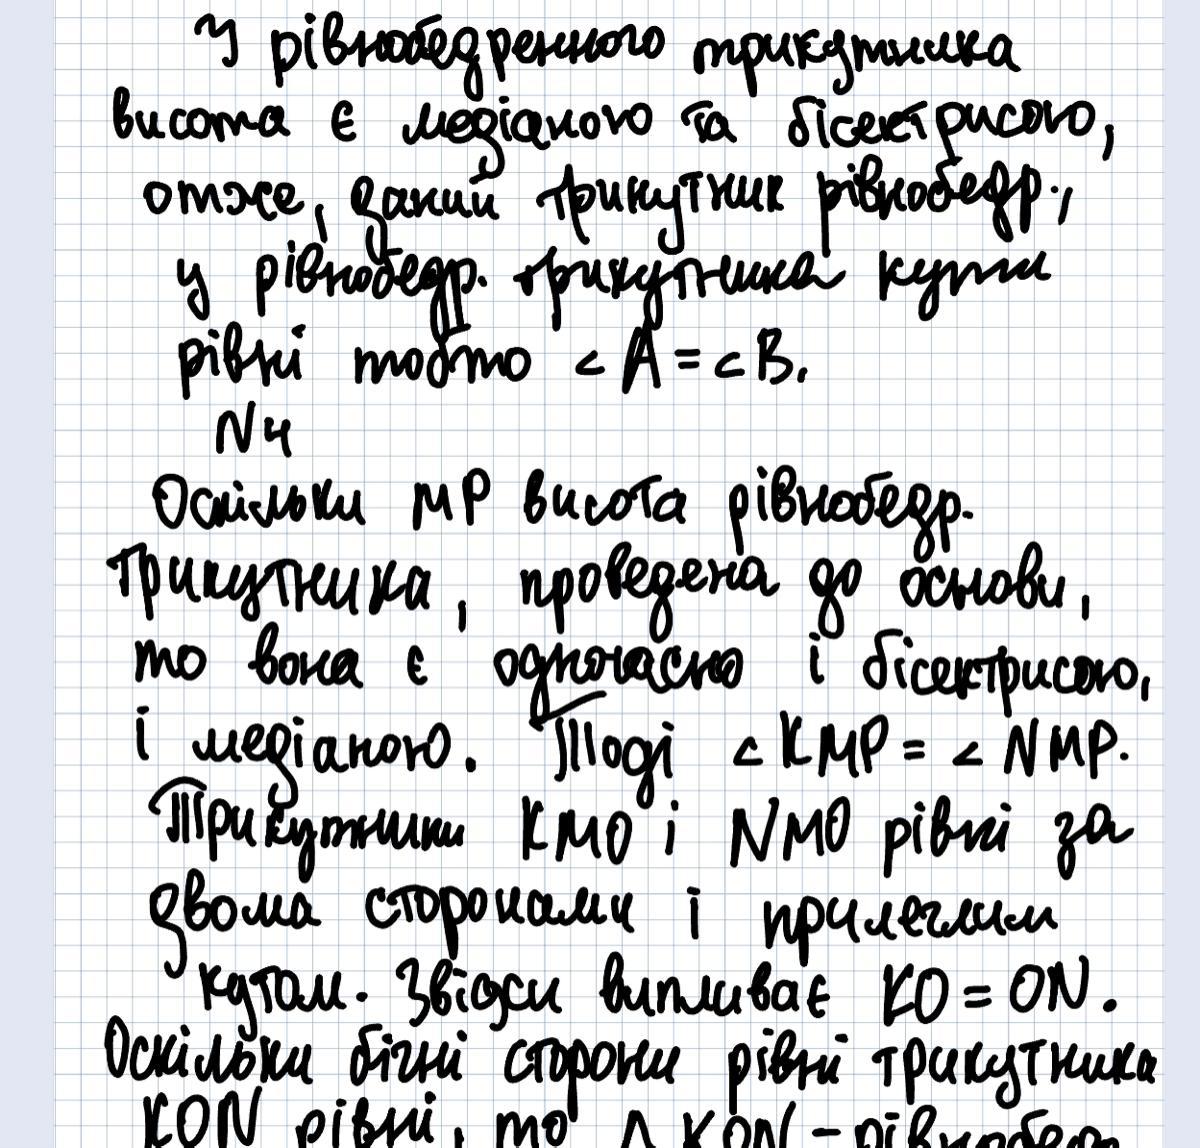 У рівнобедренного трикутника
висота є медіаною та бісектрисою,
отже, даний трикутник рівнобедр.,
у рівнобедр. трикутника кути
рівні тобто <A=<B.
N4
Оскільки MP висота рівнобедр.
трикутника, проведена до основи,
то вона є одночасно і бісектрисою,
і медіаною. Тоді <KMP = <NMP.
Трикутники KMO і NMO рівні за
двома сторонами і прилеглим
кутом. Звідси випливає KO=ON.
Оскільки бічні сторони рівні трикутника
KON рівні, то Δ KON - рівнобедр